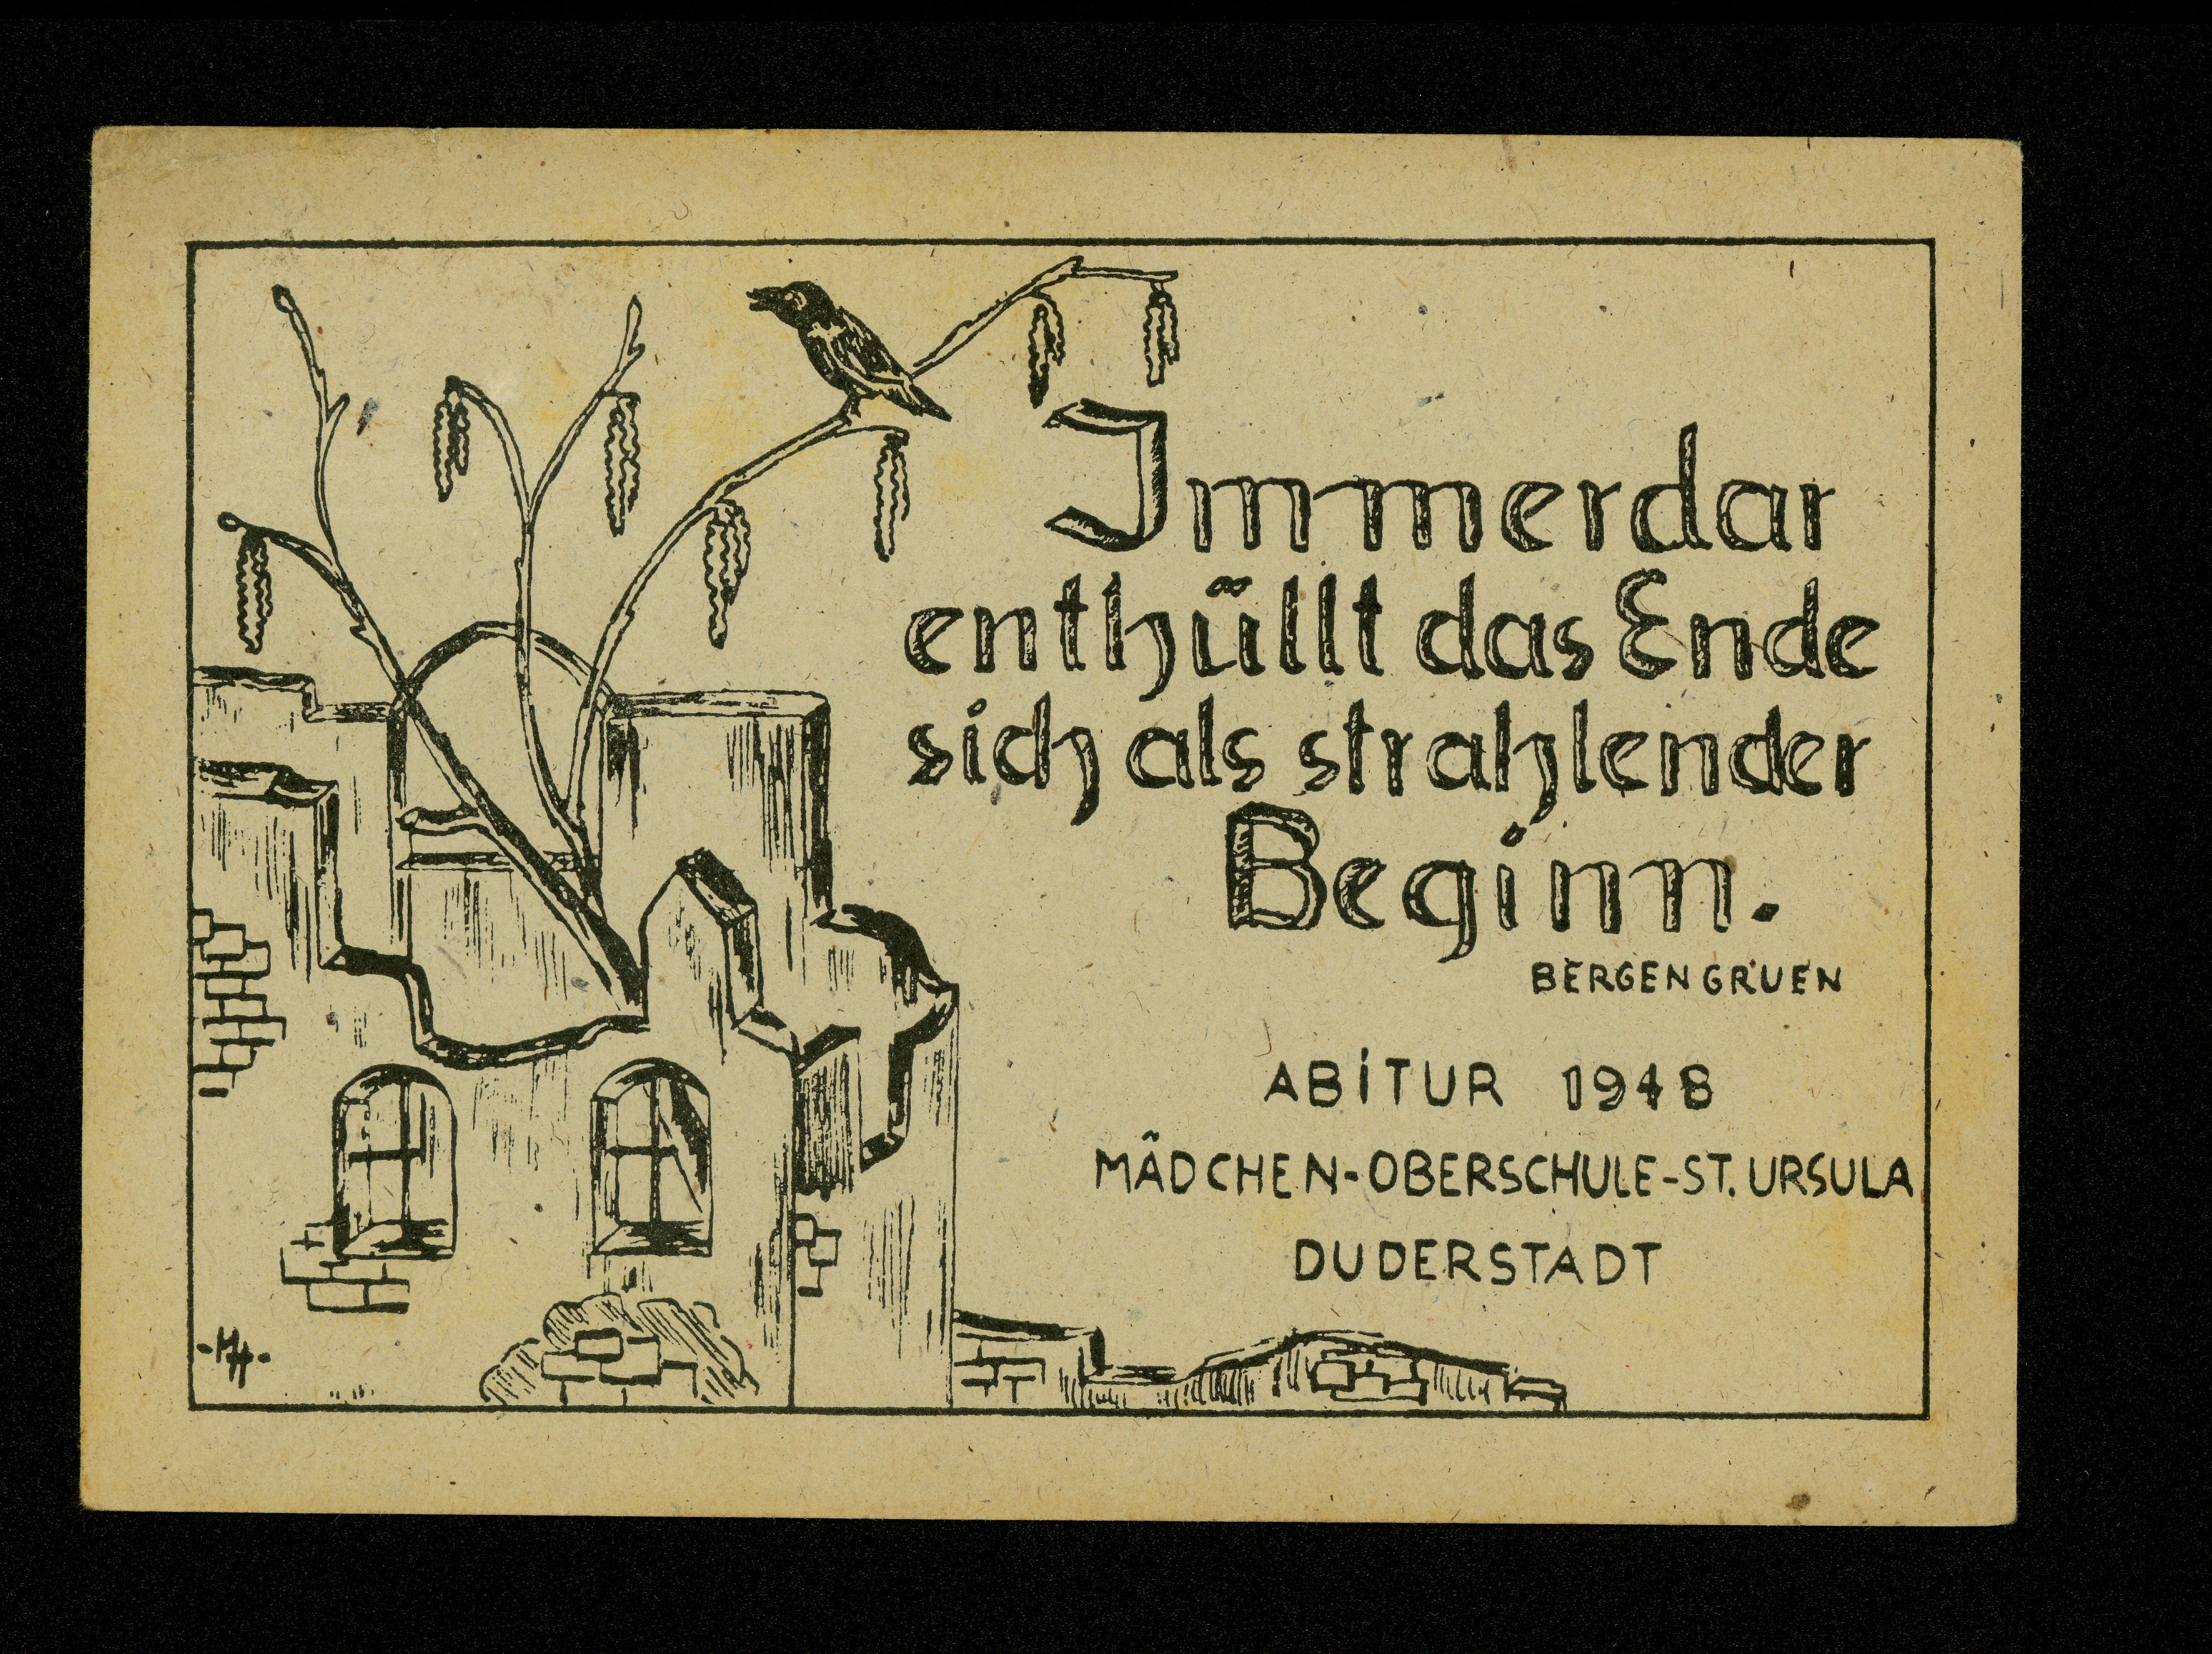 Immerdar
enthüllt das Ende
sich als strahlender
Beginn.
BERGENGRUEN
ABITUR 1948
MÄDCHEN-OBERSCHULE-ST. URSULA
DUDERSTADT